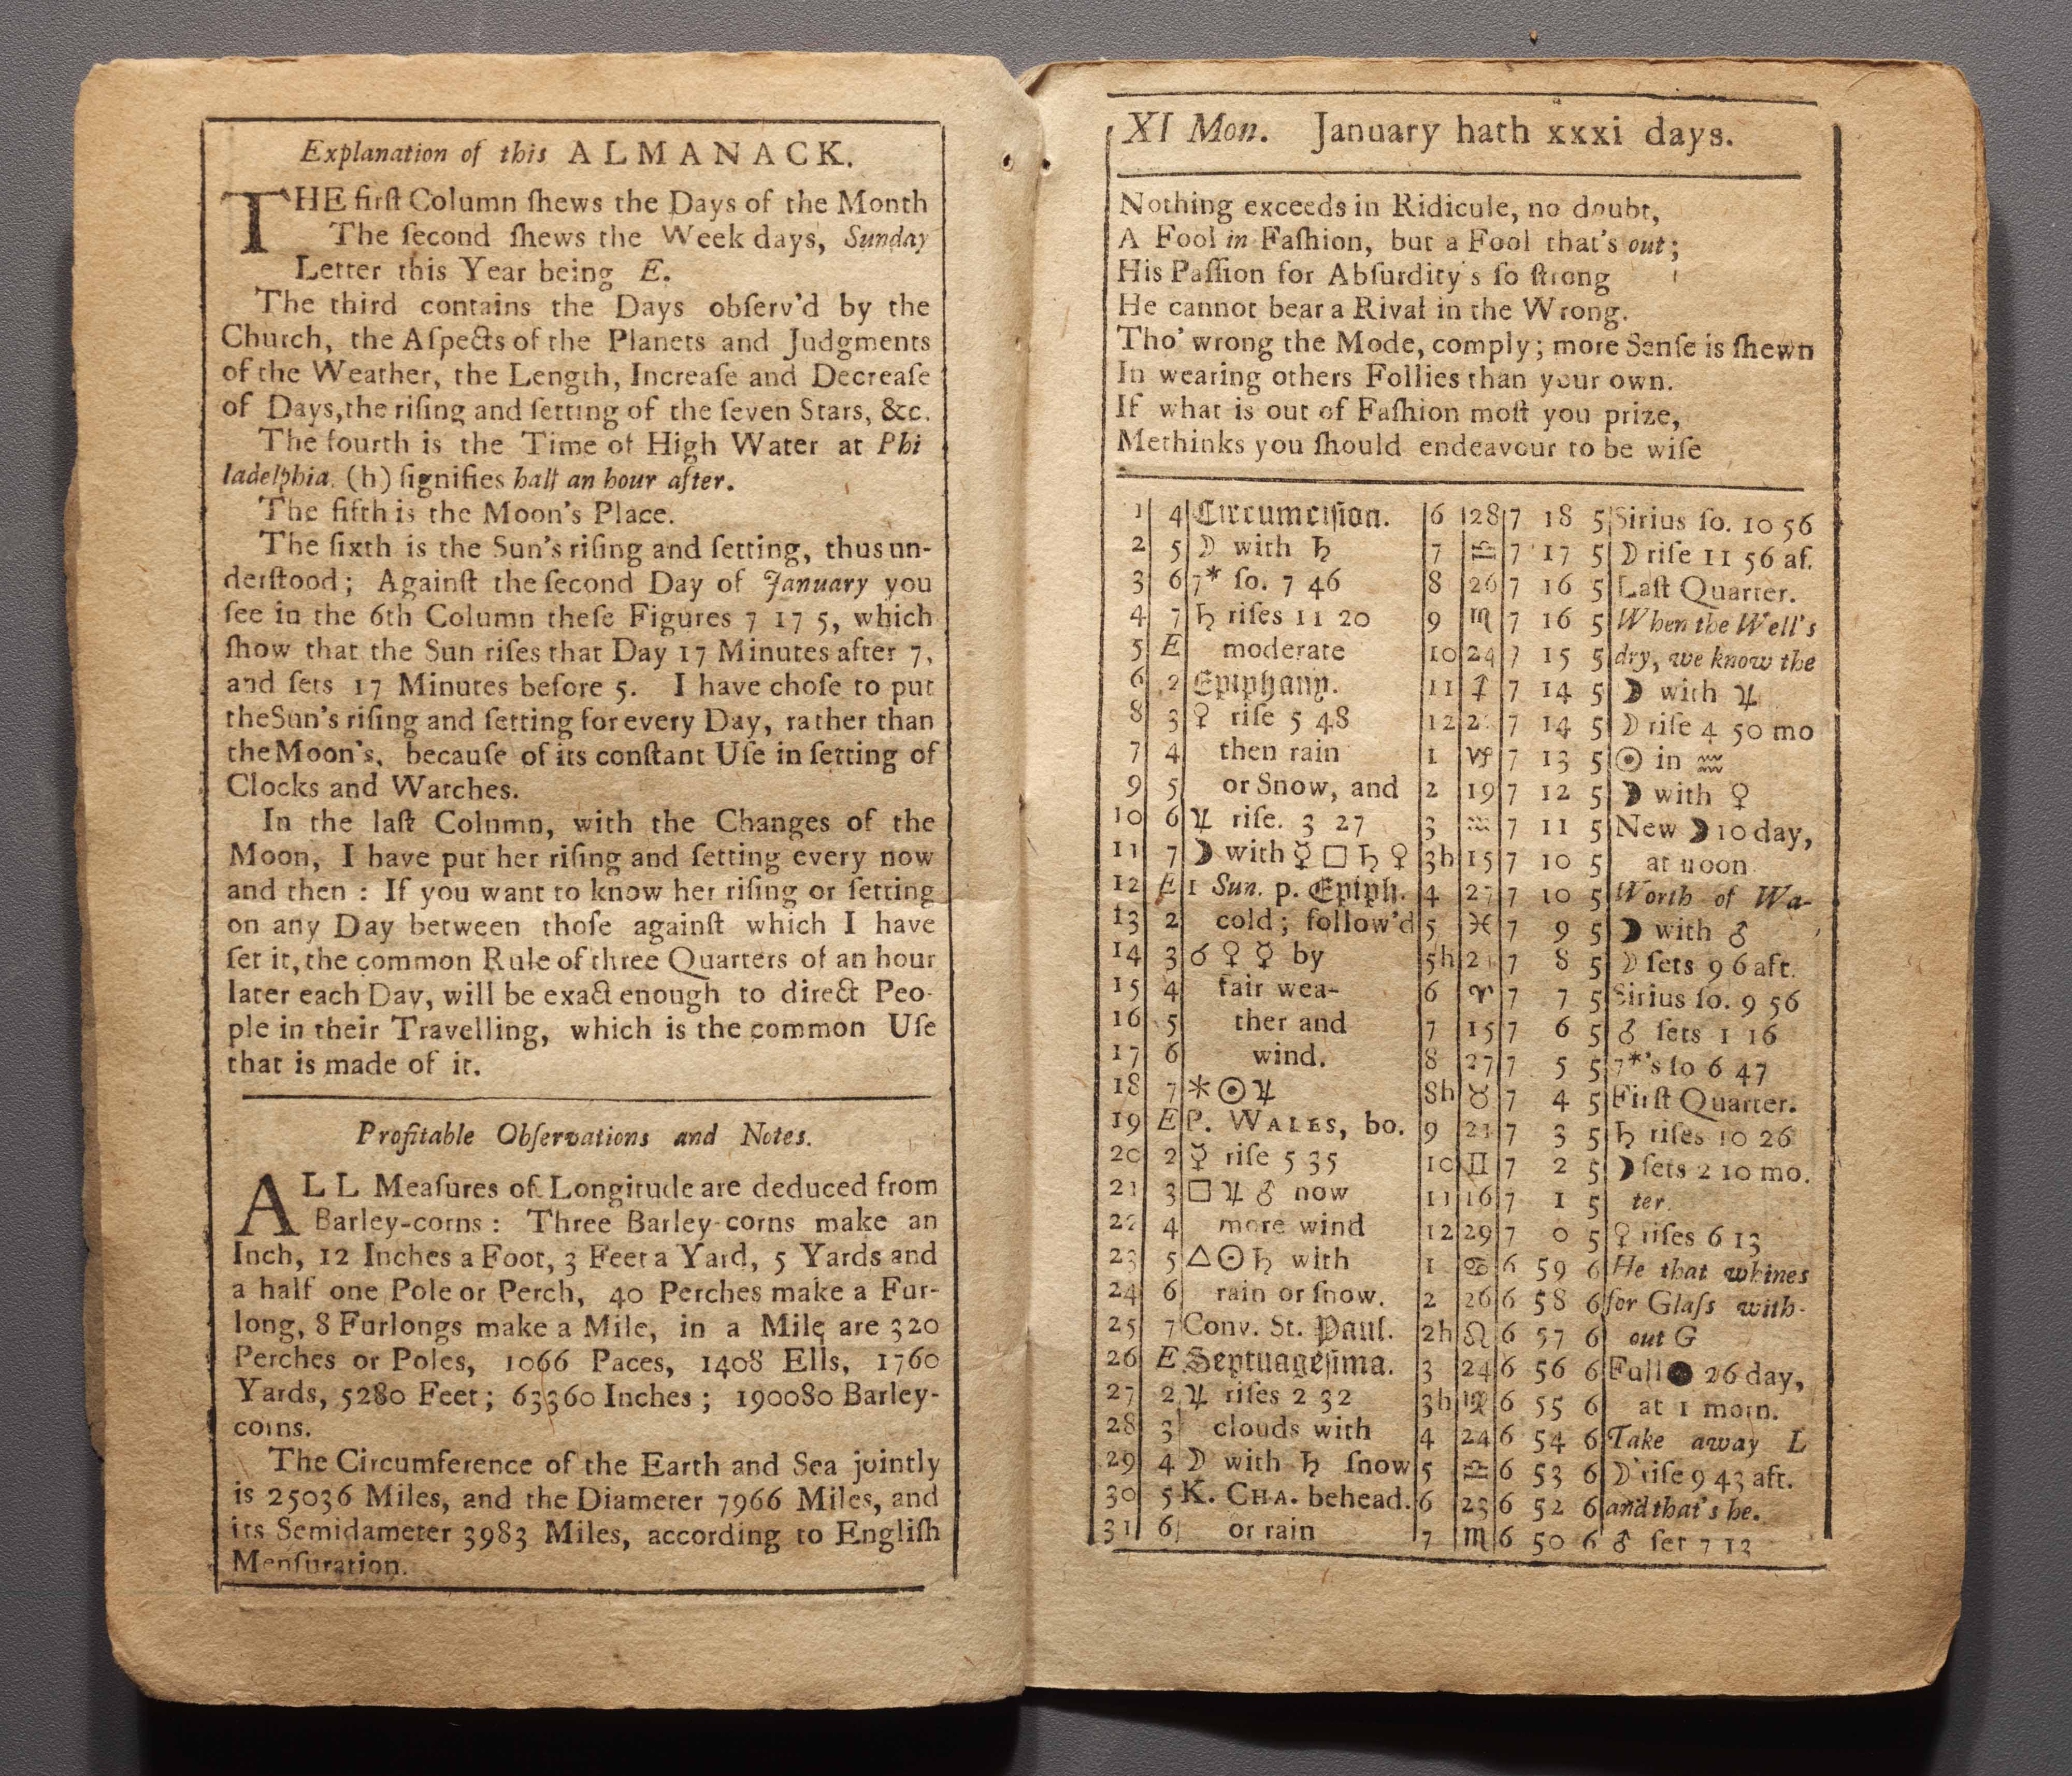 Explanation of this ALMANACK.
THE firſt Column ſhews the Days of the Month
The ſecond ſhews the Week days, Sunday
Letter this Year being E.
The third contains the Days obſerv'd by the
Church, the Aſpects of the Planets and Judgments
of the Weather, the Length, Increaſe and Decreaſe
of Days, the riſing and ſetting of the ſeven Stars, &c.
The fourth is the Time of High Water at Phi
ladelphia. (h) ſignifies half an hour after.
The fifth is the Moon's Place.
The ſixth is the Sun's riſing and ſetting, thus un-
derſtood; Againſt the ſecond Day of January you
ſee in the 6th Column theſe Figures 7 17 5, which
ſhow that the Sun riſes that Day 17 Minutes after 7,
and ſets 17 Minutes before 5. I have choſe to put
the Sun's riſing and ſetting for every Day, rather than
the Moon's, becauſe of its conſtant Uſe in ſetting of
Clocks and Watches.
In the laſt Column, with the Changes of the
Moon, I have put her riſing and ſetting every now
and then : If you want to know her riſing or ſetting
on any Day between thoſe againſt which I have
ſet it, the common Rule of three Quarters of an hour
later each Day, will be exact enough to direct Peo-
ple in their Travelling, which is the common Uſe
that is made of it.
Profitable Obſervations and Notes.
ALL Meaſures of Longitude are deduced from
Barley-corns : Three Barley-corns make an
Inch, 12 Inches a Foot, 3 Feet a Yard, 5 Yards and
a half one Pole or Perch, 40 Perches make a Fur-
long, 8 Furlongs make a Mile, in a Mile are 320
Perches or Poles, 1066 Paces, 1408 Ells, 1760
Yards, 5280 Feet; 63360 Inches; 190080 Barley-
coins.
The Circumference of the Earth and Sea jointly
is 25036 Miles, and the Diameter 7966 Miles, and
its Semidameter 3983 Miles, according to Engliſh
Menſuration.
XI Mon. January hath xxxi days.
Nothing exceeds in Ridicule, no doubt,
A Fool in Faſhion, but a Fool that's out;
His Paſſion for Abſurdity's ſo ſtrong
He cannot bear a Rival in the Wrong.
Tho' wrong the Mode, comply; more Senſe is ſhewn
In wearing others Follies than your own.
If what is out of Faſhion moſt you prize,
Methinks you ſhould endeavour to be wiſe
1 4 Circumciſion. 6 28 7 18 5 Sirius ſo. 10 56
2 5 ☽ with ♄ 7 ♎ 7 17 5 ☽ riſe 11 56 af.
3 6 7* ſo. 7 46 8 26 7 16 5 Laſt Quarter.
4 7 ♄ riſes 11 20 9 ♏ 7 16 5 When the Well's
5 E moderate 10 24 7 15 5 dry, we know the
6 2 Epiphany. 11 ♐ 7 14 5 ☽ with ♃
8 3 ♀ riſe 5 48 12 7 14 5 ☽ riſe 4 50 mo
7 4 then rain 1 ♑ 7 13 5 ☉ in ♒
9 5 or Snow, and 2 19 7 12 5 ☽ with ♀
10 6 ♃ riſe. 3 27 3 ♒ 7 11 5 New ☽ 10 day,
11 7 ☽ with ☿ □ ♄ ♀ 3h 15 7 10 5 at noon
12 E 1 Sun. p. Epiph. 4 27 7 10 5 Worth of Wa-
13 2 cold; follow'd 5 ♓ 7 9 5 ☽ with ♂
14 3 ☌ ♀ ☿ by 5h 21 7 8 5 ☽ ſets 9 6 aft.
15 4 fair wea- 6 ♈ 7 7 5 Sirius ſo. 9 56
16 5 ther and 7 15 7 6 5 ♂ ſets 1 16
17 6 wind. 8 27 7 5 5 7*'s ſo 6 47
18 7 ⚹ ☉ ♃ 8h ♉ 7 4 5 Firſt Quarter.
19 E P. WALES, bo. 9 21 7 3 5 ♄ riſes 10 26
20 2 ☿ riſe 5 35 10 ♊ 7 2 5 ☽ ſets 2 10 mo.
21 3 □ ♃ ♂ now 11 16 7 1 5 ter.
22 4 more wind 12 29 7 0 5 ♀ riſes 6 13
23 5 △ ☉ ♄ with 1 ♋ 6 59 6 He that whines
24 6 rain or ſnow. 2 26 6 58 6 for Glaſs with-
25 7 Conv. St. Paul. 2h ♌ 6 57 6 out G
26 E Septuageſima. 3 24 6 56 6 Full ● 26 day,
27 2 ♃ riſes 2 32 3h ♍ 6 55 6 at 1 morn.
28 3 clouds with 4 24 6 54 6 Take away L
29 4 ☽ with ♄ ſnow 5 ♎ 6 53 6 ☽ riſe 9 43 aft.
30 5 K. CHA. behead. 6 23 6 52 6 and that's he.
31 6 or rain 7 ♏ 6 50 6 ♂ ſet 7 12